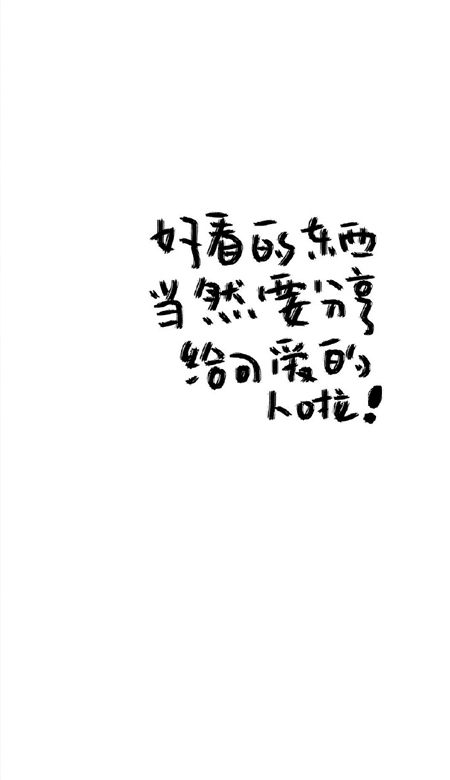 好看的东西
当然要分享
给可爱的
人啦！